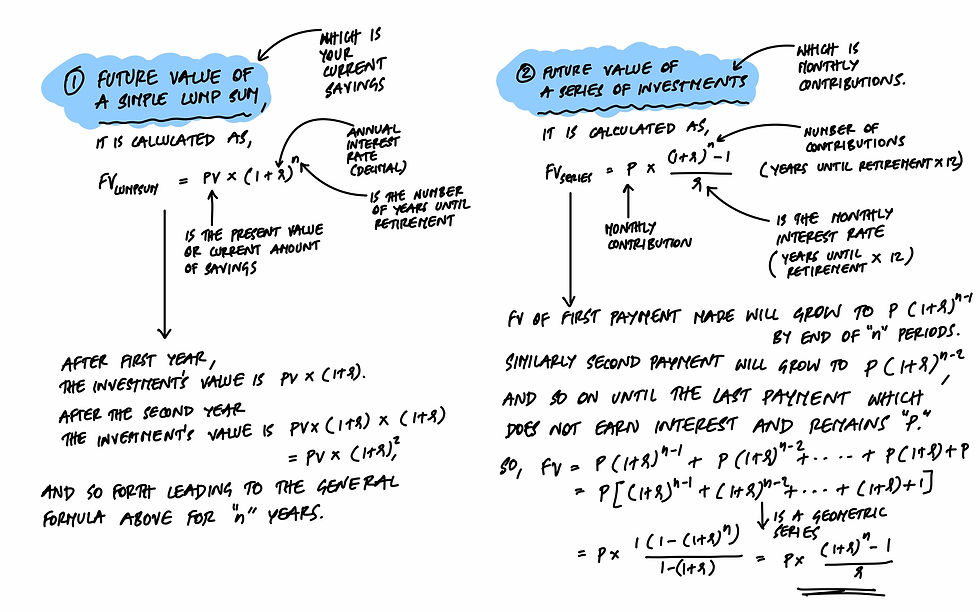 ① FUTURE VALUE OF
A SIMPLE LUMP SUM,
WHICH IS
YOUR
CURRENT
SAVINGS
IT IS CALCULATED AS,
FV_LUMPSUM = PV × (1+r)^n
ANNUAL
INTEREST
RATE
(DECIMAL)
IS THE NUMBER
OF YEARS UNTIL
RETIREMENT
IS THE PRESENT VALUE
OR CURRENT AMOUNT
OF SAVINGS
AFTER FIRST YEAR,
THE INVESTMENT'S VALUE IS PV × (1+r).
AFTER THE SECOND YEAR
THE INVESTMENT'S VALUE IS PV × (1+r) × (1+r)
= PV × (1+r)^2,
AND SO FORTH LEADING TO THE GENERAL
FORMULA ABOVE FOR "n" YEARS.
② FUTURE VALUE OF
A SERIES OF INVESTMENTS
WHICH IS
MONTHLY
CONTRIBUTIONS.
IT IS CALCULATED AS,
FV_SERIES = P × ((1+r)^n - 1) / r
NUMBER OF
CONTRIBUTIONS
(YEARS UNTIL RETIREMENT × 12)
MONTHLY
CONTRIBUTION
IS THE MONTHLY
INTEREST RATE
(YEARS UNTIL
RETIREMENT × 12)
FV OF FIRST PAYMENT MADE WILL GROW TO P (1+r)^n-1
BY END OF "n" PERIODS.
SIMILARLY SECOND PAYMENT WILL GROW TO P (1+r)^n-2,
AND SO ON UNTIL THE LAST PAYMENT WHICH
DOES NOT EARN INTEREST AND REMAINS "P."
SO, FV = P(1+r)^n-1 + P(1+r)^n-2 + ···· + P(1+r) + P
= P[(1+r)^n-1 + (1+r)^n-2 + ··· + (1+r) + 1]
IS A GEOMETRIC
SERIES
= P × 1(1 - (1+r)^n) / 1-(1+r) = P × ((1+r)^n - 1) / r